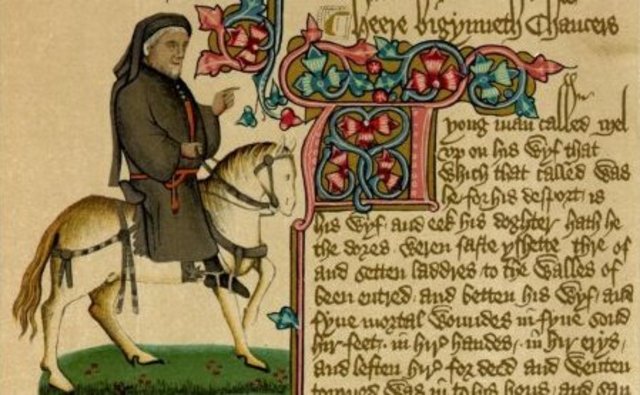 Heere bigynneth Chaucers
A yong man called Mel
vp on his wyf that
which that called was
he for his desport is
his wyf and eek his doghter hath he
the dores weren faste yshette thre of
and setten laddres to the walles of
been entred and betten his wyf and
fyue mortal woundes in fyue sond
hir feet in hir handes in hir erys
and leften hir for deed and wenten
torned was in to his hous and